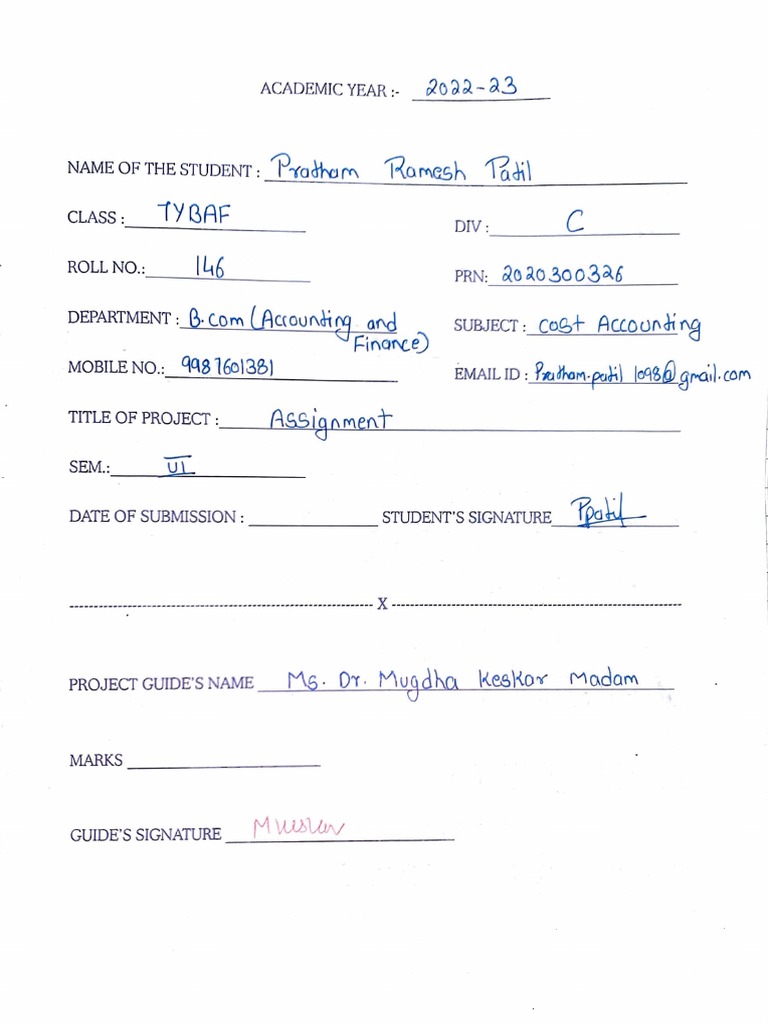 ACADEMIC YEAR :- 2022-23
NAME OF THE STUDENT : Pratham Ramesh Patil
CLASS : TYBAF DIV : C
ROLL NO.: 146 PRN: 2020300326
DEPARTMENT : B.com (Accounting and Finance) SUBJECT : cost Accounting
MOBILE NO.: 9987601381 EMAIL ID : Pratham.patil1098@gmail.com
TITLE OF PROJECT : Assignment
SEM.: VI
DATE OF SUBMISSION : STUDENT'S SIGNATURE Ppatil
X
PROJECT GUIDE'S NAME Ms. Dr. Mugdha Keskar Madam
MARKS
GUIDE'S SIGNATURE MKeskar